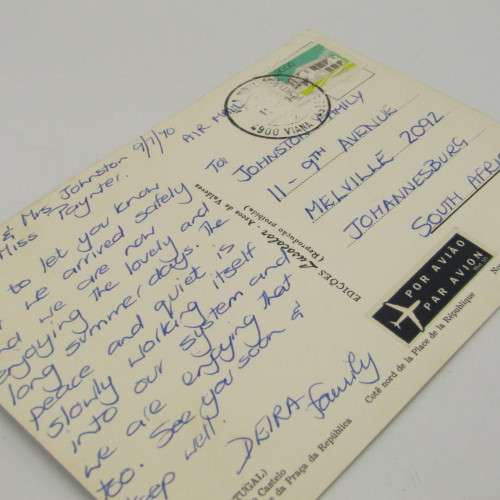 9/7/90
& Mrs Johnston
Miss Poynter.
to let you know
we arrived safely
we are now
enjoying the lovely and
long summer days. The
peace and quiet is
slowly working itself
into our system and
we are enjoying that
too. See you soon &
keep well.
DEIRA family
AIR MAIL
TO JOHNSTON FAMILY
11-9TH AVENUE
MELVILLE 2092
JOHANNESBURG
SOUTH AFRI
4900 VIANA
EDIÇÕES Lusocolor - Arcos de Valdevez
(Reprodução proibida)
POR AVIÃO
PAR AVION
TUGAL)
Castelo
da Praça da República
Coté nord de la Place de la République